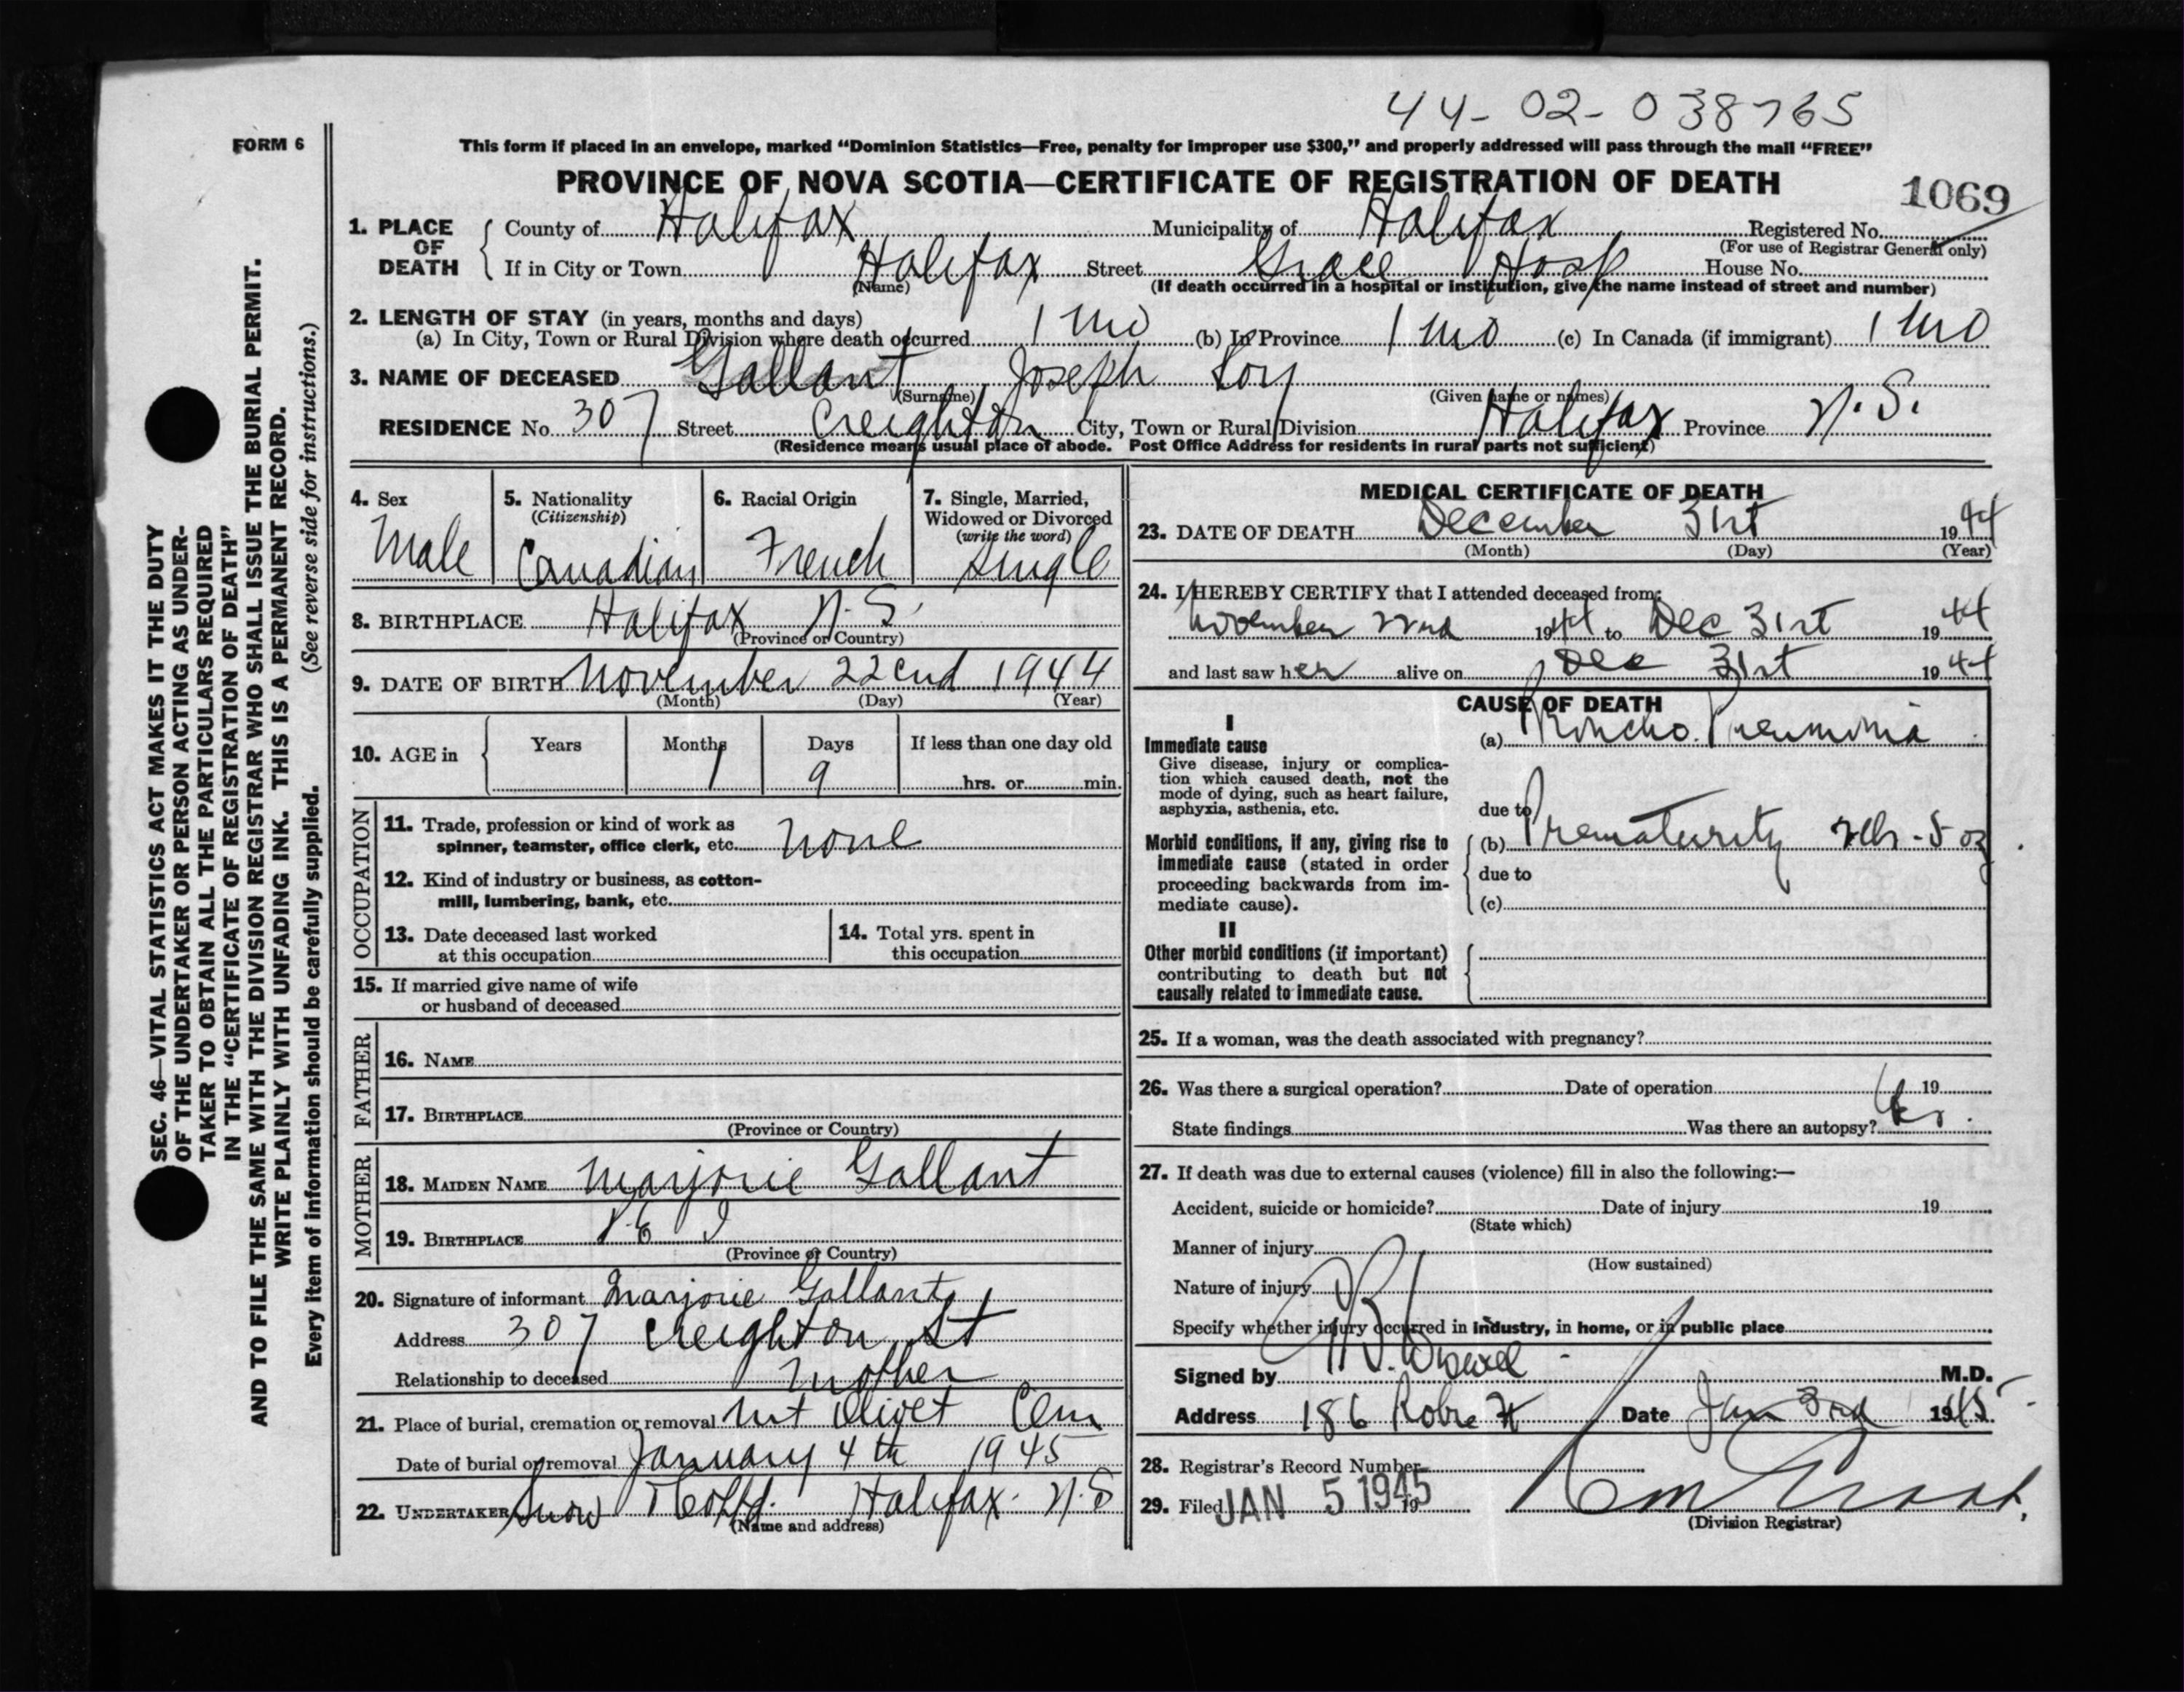 44-02-038765
FORM 6
This form if placed in an envelope, marked "Dominion Statistics—Free, penalty for improper use $300," and properly addressed will pass through the mail "FREE"
PROVINCE OF NOVA SCOTIA—CERTIFICATE OF REGISTRATION OF DEATH
1069
1. PLACE OF DEATH
County of Halifax Municipality of Halifax Registered No.
(For use of Registrar General only)
If in City or Town Halifax Street Grace Hosp House No.
(Name) (If death occurred in a hospital or institution, give the name instead of street and number)
2. LENGTH OF STAY (in years, months and days)
(a) In City, Town or Rural Division where death occurred 1 mo (b) In Province 1 mo (c) In Canada (if immigrant) 1 mo
3. NAME OF DECEASED Gallant, Joseph
(Surname) (Given name or names)
RESIDENCE No. 307 Street Creighton City, Town or Rural Division Halifax Province N.S.
(Residence means usual place of abode. Post Office Address for residents in rural parts not sufficient)
4. Sex
Male
5. Nationality
(Citizenship)
Canadian
6. Racial Origin
French
7. Single, Married,
Widowed or Divorced
(write the word)
Single
8. BIRTHPLACE Halifax N.S.
(Province or Country)
9. DATE OF BIRTH November 22cnd 1944
(Month) (Day) (Year)
10. AGE in
Years Months Days If less than one day old
1 9 hrs. or min.
OCCUPATION
11. Trade, profession or kind of work as
spinner, teamster, office clerk, etc. none
12. Kind of industry or business, as cotton-
mill, lumbering, bank, etc.
13. Date deceased last worked
at this occupation
14. Total yrs. spent in
this occupation
15. If married give name of wife
or husband of deceased
FATHER
16. NAME
17. BIRTHPLACE
(Province or Country)
MOTHER
18. MAIDEN NAME Marjorie Gallant
19. BIRTHPLACE P E I
(Province or Country)
20. Signature of informant Marjorie Gallant
Address 307 Creighton St
Relationship to deceased Mother
21. Place of burial, cremation or removal Mt Olivet Cem
Date of burial or removal January 4th 1945
22. UNDERTAKER Snow Halifax. N.S
(Name and address)
MEDICAL CERTIFICATE OF DEATH
23. DATE OF DEATH December 31st 1944
(Month) (Day) (Year)
24. I HEREBY CERTIFY that I attended deceased from:
November 22nd 1944 to Dec 31st 1944
and last saw her alive on Dec 31st 1944
CAUSE OF DEATH
I
Immediate cause
Give disease, injury or complica-
tion which caused death, not the
mode of dying, such as heart failure,
asphyxia, asthenia, etc.
(a) Broncho. Pneumonia
due to
Morbid conditions, if any, giving rise to
immediate cause (stated in order
proceeding backwards from im-
mediate cause).
(b) Prematurity 2lbs - 5 oz.
due to
(c)
II
Other morbid conditions (if important)
contributing to death but not
causally related to immediate cause.
25. If a woman, was the death associated with pregnancy?
26. Was there a surgical operation? Date of operation 19
State findings Was there an autopsy? Yes.
27. If death was due to external causes (violence) fill in also the following:—
Accident, suicide or homicide? Date of injury 19
(State which)
Manner of injury
(How sustained)
Nature of injury
Specify whether injury occurred in industry, in home, or in public place
Signed by M.D.
Address 186 Robie St Date Jan 3rd 1945
28. Registrar's Record Number
29. Filed JAN 5 1945 19
(Division Registrar)
SEC. 46—VITAL STATISTICS ACT MAKES IT THE DUTY
OF THE UNDERTAKER OR PERSON ACTING AS UNDER-
TAKER TO OBTAIN ALL THE PARTICULARS REQUIRED
IN THE "CERTIFICATE OF REGISTRATION OF DEATH"
AND TO FILE THE SAME WITH THE DIVISION REGISTRAR WHO SHALL ISSUE THE BURIAL PERMIT.
WRITE PLAINLY WITH UNFADING INK. THIS IS A PERMANENT RECORD.
Every item of information should be carefully supplied. (See reverse side for instructions.)